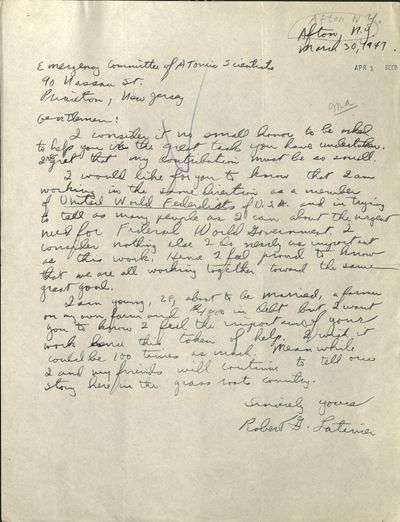 Afton, N.Y.
Afton, N.Y.
March 30, 1947.
APR 1 RECD
Emergency Committee of Atomic Scientists
90 Nassau St.
Princeton, New Jersey
Gentlemen:
I consider it no small honor to be asked
to help you in the great task you have undertaken.
I regret that my contribution must be so small.
I would like for you to know that I am
working in the same direction as a member
of United World Federalists of U.S.A. and in trying
to tell as many people as I can about the urgent
need for Federal World Government. I
consider nothing else I do nearly as important
as this work. Hence I feel proud to know
that we are all working together toward the same
great goal.
I am young, 29, about to be married, a farmer
on my own farm and in debt but I want
you to know I feel the importance of your
work hence this token of help. I wish it
could be 100 times as much. Mean while
I and my friends will continue to tell our
story here in the grass roots country.
Sincerely yours
Robert G.